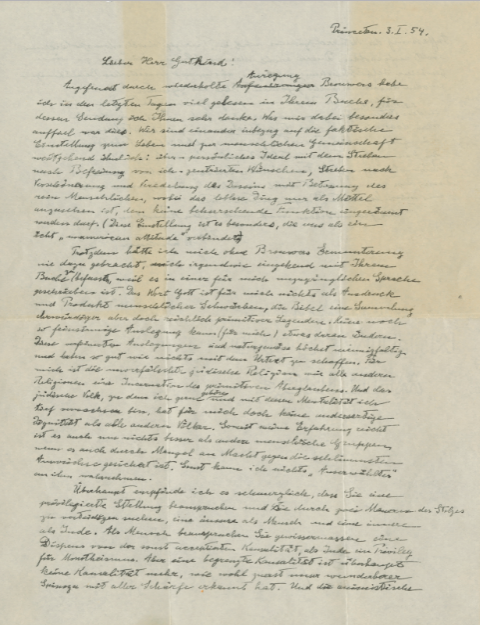 Princeton. 3. I. 54.
Lieber Herr Gutkind!
Angefeuert durch wiederholte Anregung Brouwers habe
ich in den letzten Tagen viel gelesen in Ihrem Buche, für
dessen Sendung ich Ihnen sehr danke. Was mir dabei besonders
auffiel war dies. Wir sind einander inbezug auf die faktische
Einstellung zum Leben und zur menschlichen Gemeinschaft
weitgehend ähnlich: über-persönliches Ideal mit dem Streben
nach Befreiung von ich-zentrierten Wünschen, Streben nach
Verschönerung und Veredelung des Daseins mit Betonung des
rein Menschlichen, wobei das leblose Ding nur als Mittel
anzusehen ist, dem keine beherrschende Funktion eingeräumt
werden darf. (Diese Einstellung ist es besonders, die uns als ein
echt "unamerican attitude" verbindet)
Trotzdem hätte ich mich ohne Brouwers Ermunterung
nie dazu gebracht, mich irgendwie eingehend mit Ihrem
Buche befassen, weil es in einer für mich unzugänglichen Sprache
geschrieben ist. Das Wort Gott ist für mich nichts als Ausdruck
und Produkt menschlicher Schwächen, die Bibel eine Sammlung
ehrwürdiger aber doch reichlich primitiver Legenden. Keine noch
so feinsinnige Auslegung kann (für mich) etwas daran ändern.
Diese verfeinerten Auslegungen sind naturgemäss höchst mannigfaltig
und haben so gut wie nichts mit dem Urtext zu schaffen. Für
mich ist die unverfälschte jüdische Religion wie alle anderen
Religionen eine Incarnation des primitiven Aberglaubens. Und das
jüdische Volk, zu dem ich gern gehöre und mit dessen Mentalität ich
tief verwachsen bin, hat für mich doch keine andersartige
Dignität als alle anderen Völker. Soweit meine Erfahrung reicht
ist es auch um nichts besser als andere menschliche Gruppen,
wenn es auch durch Mangel an Macht gegen die schlimmsten
Auswüchse gesichert ist. Sonst kann ich nichts "Auserwähltes"
an ihm wahrnehmen.
Überhaupt empfinde ich es schmerzlich, dass Sie eine
privilegierte Stellung beanspruchen und sie durch zwei Mauern des Stolzes
zu verteidigen suchen, eine äussere als Mensch und eine innere
als Jude. Als Mensch beanspruchen Sie gewissermassen einen
Dispens von der sonst acceptierten Kausalität, als Jude ein Privileg
für Monotheismus. Aber eine begrenzte Kausalität ist überhaupt
keine Kausalität mehr, wie wohl zuerst unser wunderbarer
Spinoza mit aller Schärfe erkannt hat. Und die animistische